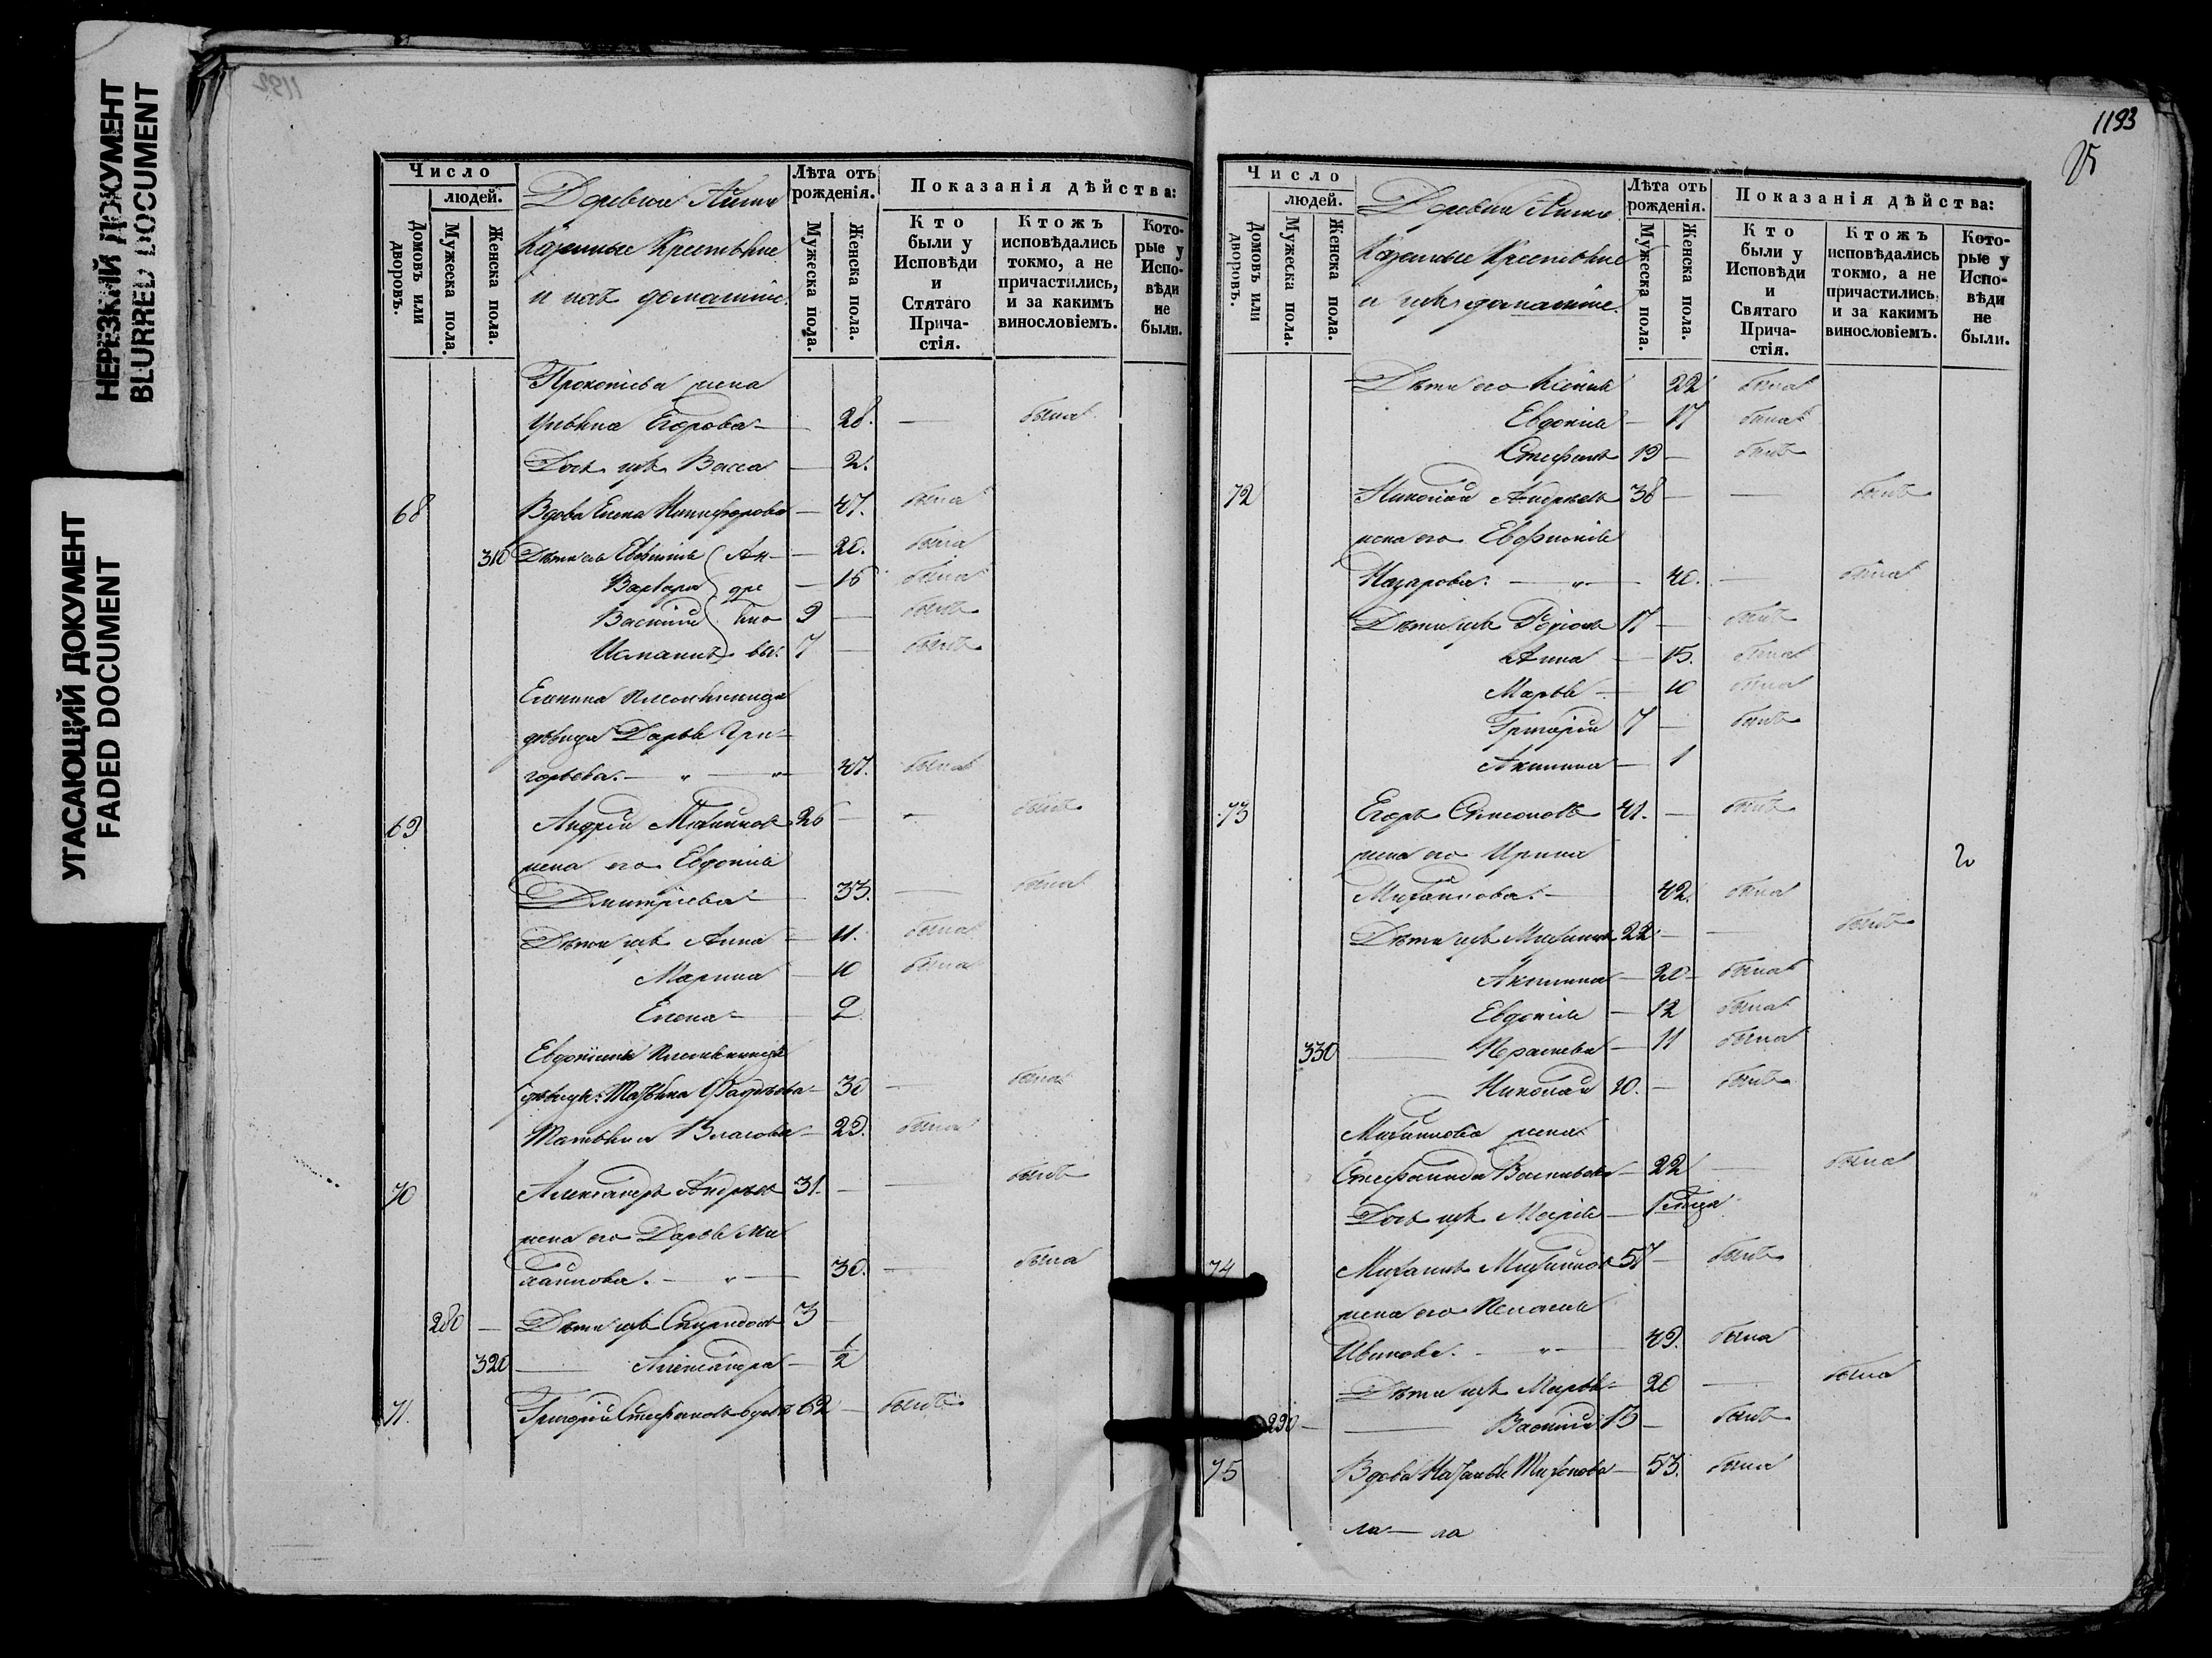 НЕРЕЗКИЙ ДОКУМЕНТ
BLURRED DOCUMENT
УГАСАЮЩИЙ ДОКУМЕНТ
FADED DOCUMENT
Число
людей.
Домовъ или дворовъ.
Мужеска пола.
Женска пола.
Деревня
Казенные Крестьяне
и ихъ домашніе.
Лѣта отъ рожденія.
Мужеска пола.
Женска пола.
Показанія дѣйства:
Кто были у Исповѣди и Стятаго Прича-стія.
Ктожъ исповѣдались токмо, а не причастились, и за какимъ винословіемъ.
Кото-рые у Испо-вѣди не были.
Прокопіева жена
Егорова 28. — была
Дочь ихъ Васса — 2.
68 Вдова Елена Никифорова — 47. была
310 Дѣти ея Евфимія Ан- — 20. была
Варвара дре — 15 была
Василій яно 9 — былъ
вы. 7 — былъ
Еленина племянница
дѣвица Дарья Гри-
горьева. — 47. была
69 Андрей Михайловъ 26 — былъ
жена его Евдокія
Дмитріева 33. — была
Дѣти ихъ Анна — 11. была
Марина — 10 была
Елена — 2
Евдокіины племянницы
дѣвицы: Татьяна Фадѣева — 30 — была
Татьяна Власова — 23. была
70 Александръ Андреевъ 31. — былъ
жена его Дарья Ми
хайлова. — 30. — была
280 — Дѣти ихъ Спиридонъ 3 —
320 — Александра — 1/2
71. Григорій Стефановъ вдовъ 62 — былъ
1193
Число
людей.
Домовъ или дворовъ.
Мужеска пола.
Женска пола.
Деревня
Казенные Крестьяне
и ихъ домашніе.
Лѣта отъ рожденія.
Мужеска пола.
Женска пола.
Показанія дѣйства:
Кто были у Исповѣди и Святаго Прича-стія.
Ктожъ исповѣдались токмо, а не причастились, и за какимъ винословіемъ.
Кото-рые у Испо-вѣди не были.
Дѣти его Ксенія 22 была
Евдокія — 17 была
Стефанъ 19 — былъ
72 Николай Андреевъ 38 — — былъ
жена его Евфросинія
Назарова. — 40. — была
Дѣти ихъ Родіонъ 17 — былъ
Анна — 15. была
Марья — 10 была
Григорій 7 — былъ
Акилина — 1
73 Егоръ Симоновъ 41. — былъ
жена его Ирина
Михайлова. — 42. была
Дѣти ихъ Михаилъ 22 — — былъ
Акилина — 20 — была
Евдокія — 12 была
330 — Прасковья — 11 была
Николай 10. — былъ
Михаилова жена
Стефанида Васильева — 22 — была
Дочь ихъ Марія —
74 Михаилъ Михайловъ 57 — былъ
жена его Пелагія
Иванова. — 49. была
Дѣти ихъ Марья — 20 — была
290 — Василій 13 — былъ
75 Вдова Наталья Тихонова — 53. была